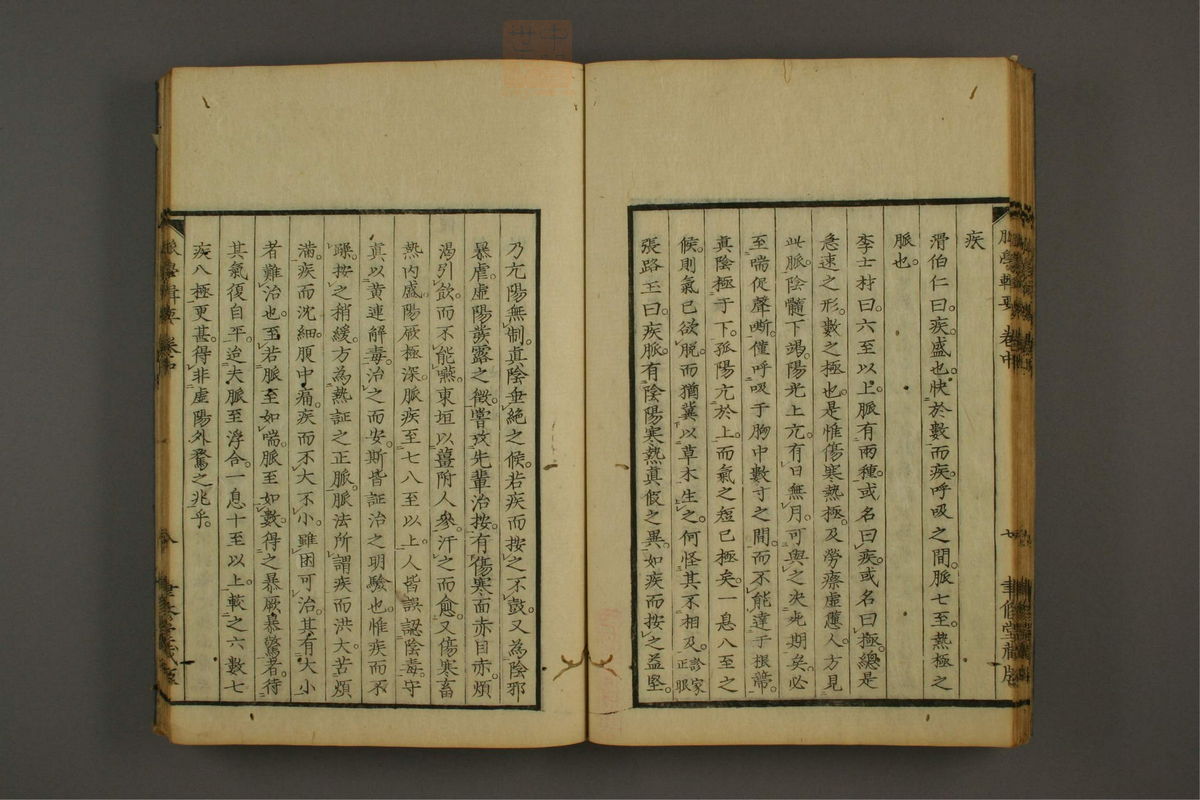 脈學輯要 卷中 七 聿修堂藏版
疾
滑伯仁曰。疾盛也。快於數而疾。呼吸之間。脈七至。熱極之
脈也。
李士材曰。六至以上。脈有兩種。或名曰疾。或名曰極。總是
急速之形。數之極也。是惟傷寒熱極。及勞瘵虛憊人。方見
此脈。陰髓下竭。陽光上亢。有日無月。可與之決死期矣。必
至喘促聲嘶。僅呼吸于胸中數寸之間。而不能達于根蔕。
真陰極于下。孤陽亢於上。而氣之短已極矣。一息八至之
候。則氣已欲脫。而猶冀以草木生之。何怪其不相及。診家
正眼
張路玉曰。疾脈。有陰陽寒熱真假之異。如疾而按之益堅。
乃亢陽無制。真陰垂絕之候。若疾而按之不鼓。又為陰邪
暴虐。虛陽發露之徵。嘗攷先輩治按。有傷寒面赤目赤。煩
渴引飲。而不能嚥。東垣以薑附人參。汗之而愈。又傷寒畜
熱內盛。陽厥極深。脈疾至七八至以上。人皆誤認陰毒。守
真以黃連解毒。治之而安。斯皆証治之明驗也。惟疾而不
躁。按之稍緩。方為熱証之正脈。脈法所謂疾而洪大苦煩
滿。疾而沈細。腹中痛。疾而不大不小。雖困可治。其有大小
者難治也。至若脈至如喘。脈至如數。得之暴厥暴驚者。待
其氣復自平。迨夫脈至浮合。一息十至以上。較之六數七
疾八極更甚。得非虛陽外騖之兆乎。
脈學輯要 卷中 八 聿修堂藏版